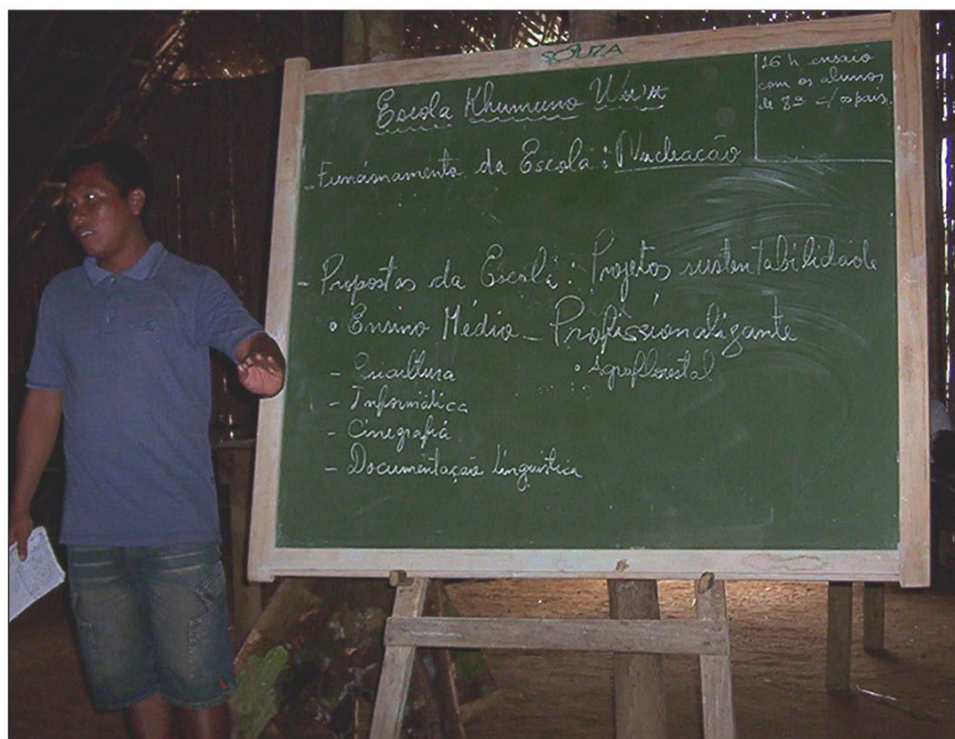 SOUZA
Escola Khumuno Wʉ'ʉ
16 h ensaio
com os alunos
de 8ª c/ os pais.
- Funcionamento da Escola: Nucleação
- Propostas da Escola: Projetos sustentabilidade
• Ensino Médio - Profissionalizante
- Piscicultura
• Agroflorestal
- Informática
- Cinegrafia
- Documentação linguística